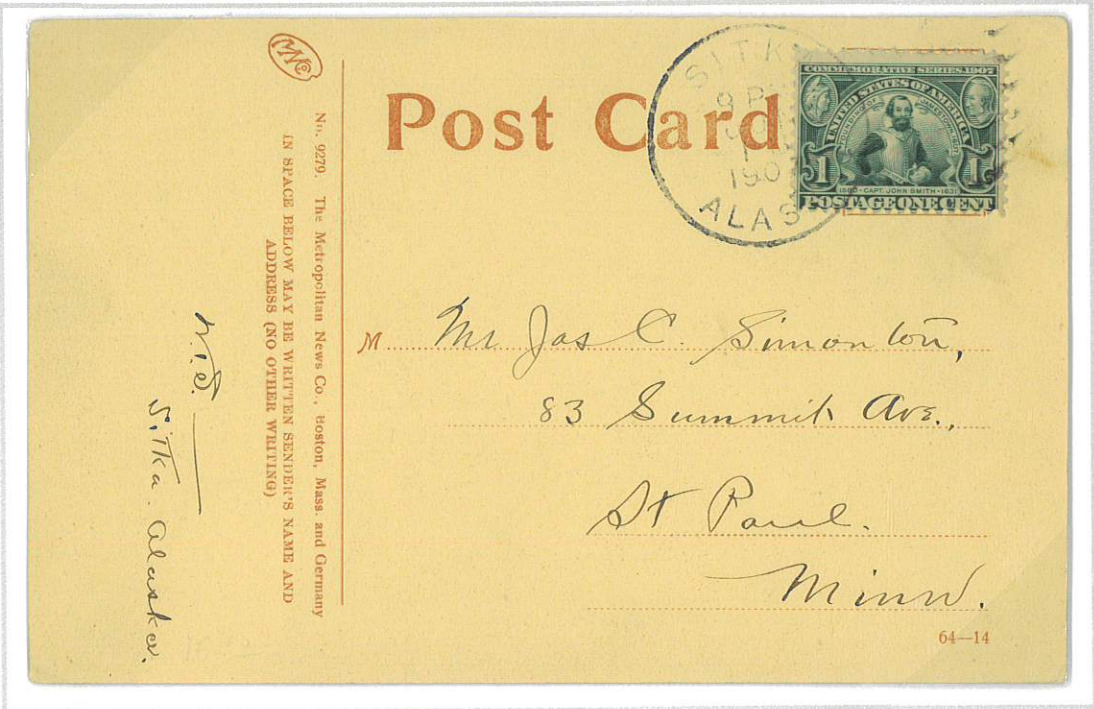 MNCo
Post Card
SITK
9 P
190
ALAS
COMMEMORATIVE SERIES 1907
UNITED STATES OF AMERICA
FOUNDING OF JAMESTOWN 1607
1 1
1580-CAPT. JOHN SMITH-1631
POSTAGE ONE CENT
No. 9279. The Metropolitan News Co., Boston, Mass. and Germany
IN SPACE BELOW MAY BE WRITTEN SENDER'S NAME AND
ADDRESS (NO OTHER WRITING)
Sitka. Alaska.
M
Mr Jas C. Simonton,
83 Summit Ave.,
St Paul.
Minn.
64—14